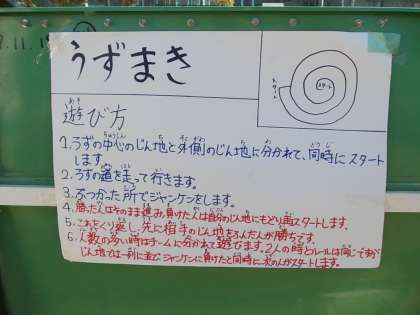 うずまき
スタート
スタート
遊び方
1.うずの中心のじん地と外側のじん地に分かれて、同時にスタート
します。
2.うずの道を走って行きます。
3.ぶつかった所でジャンケンをします。
4.勝った人はそのまま進み、負けた人は自分のじん地にもどり再スタートします。
5.これをくり返し、先に相手のじん地をふんだ人が勝ちです。
6.人数の多い時はチームに分かれて遊びます。2人の時とルールは同じですが
じん地では一列に並びジャンケンに負けたと同時に次の人がスタートします。